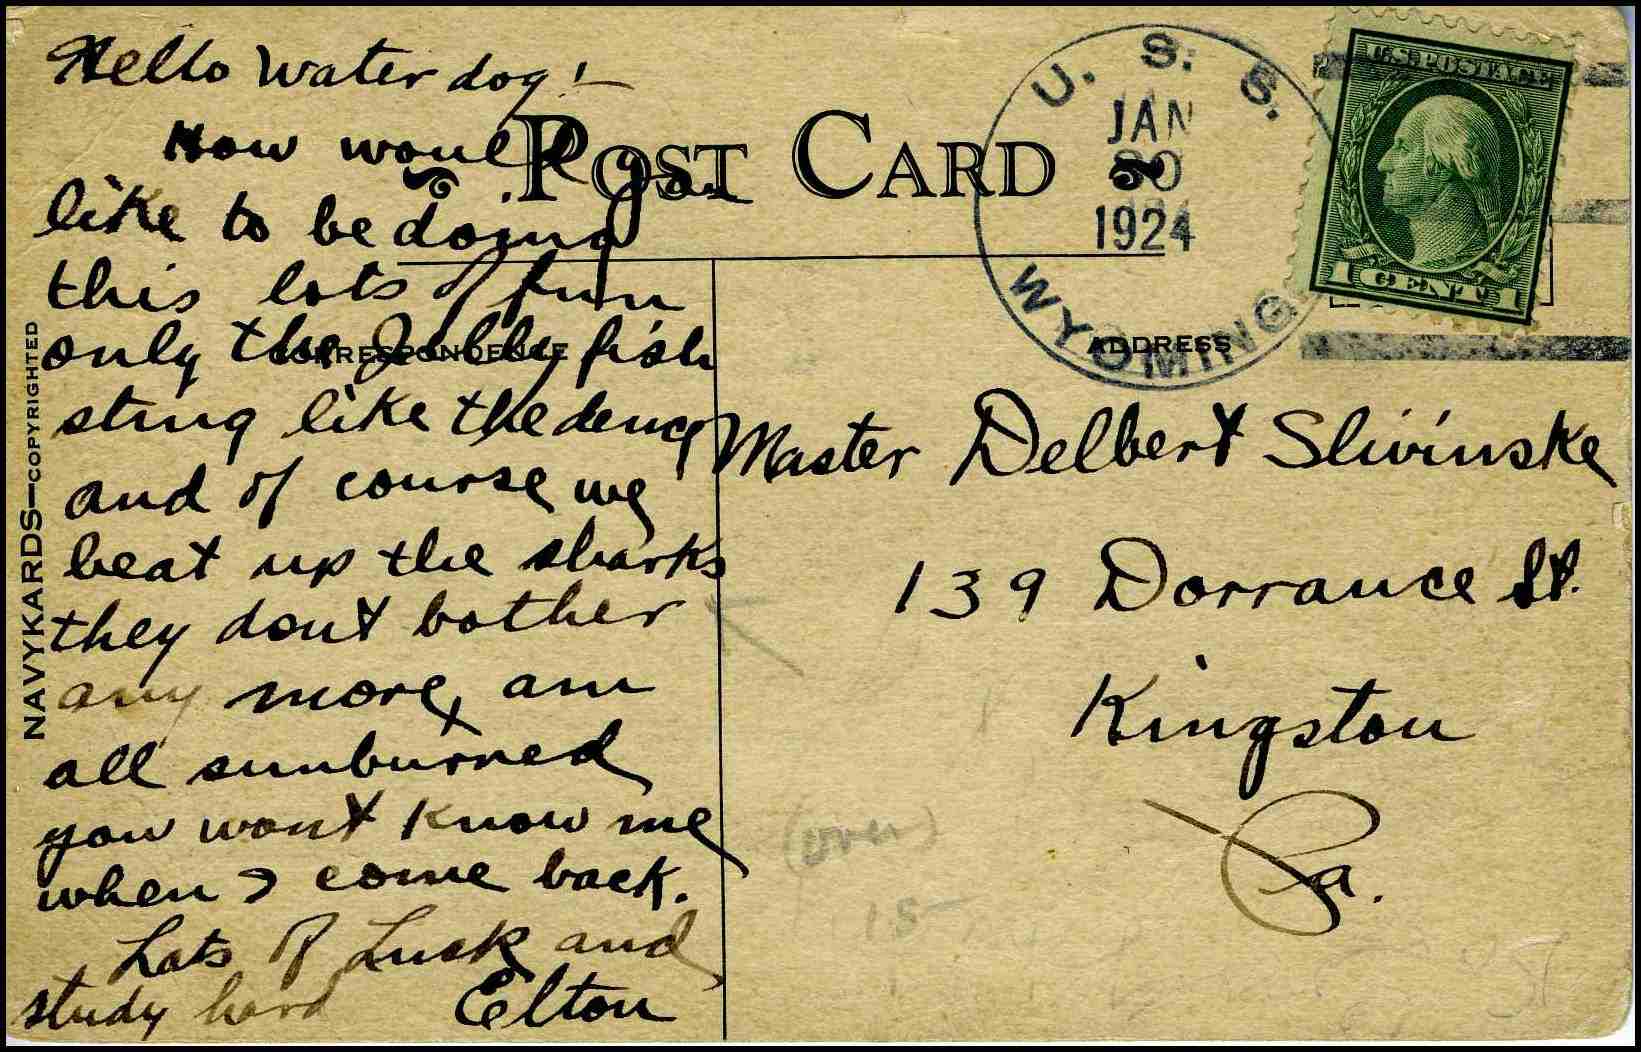 Hello Water dog!
How would you
like to be doing
this lots of fun
only the Jelly fish
sting like the deuce
and of course we
beat up the sharks
they dont bother
any more, am
all sunburned
you wont know me
when I come back.
Lots of Luck and
study hard Elton
POST CARD
CORRESPONDENCE
ADDRESS
NAVYKARDS—COPYRIGHTED
U. S. S.
JAN
30
1924
WYOMING
U.S. POSTAGE
1 CENT 1
Master Delbert Slivinske
139 Dorrance St.
Kingston
Pa.
(over)
15-